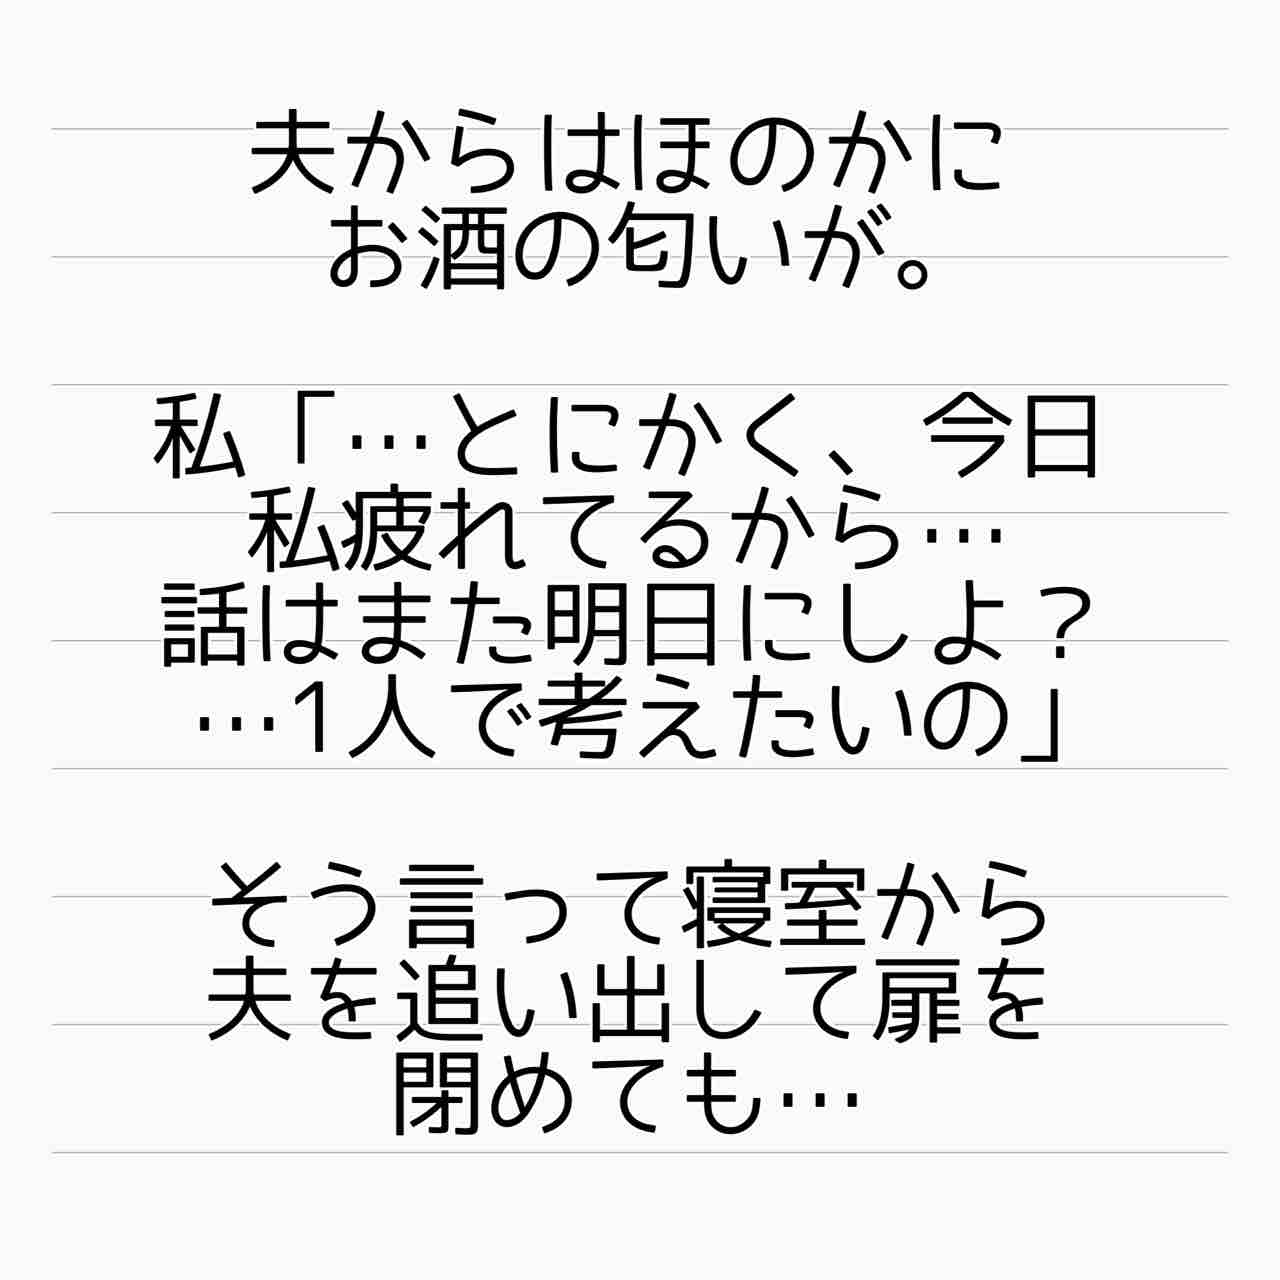 夫からはほのかに
お酒の匂いが。
私「…とにかく、今日
私疲れてるから…
話はまた明日にしよ？
…1人で考えたいの」
そう言って寝室から
夫を追い出して扉を
閉めても…